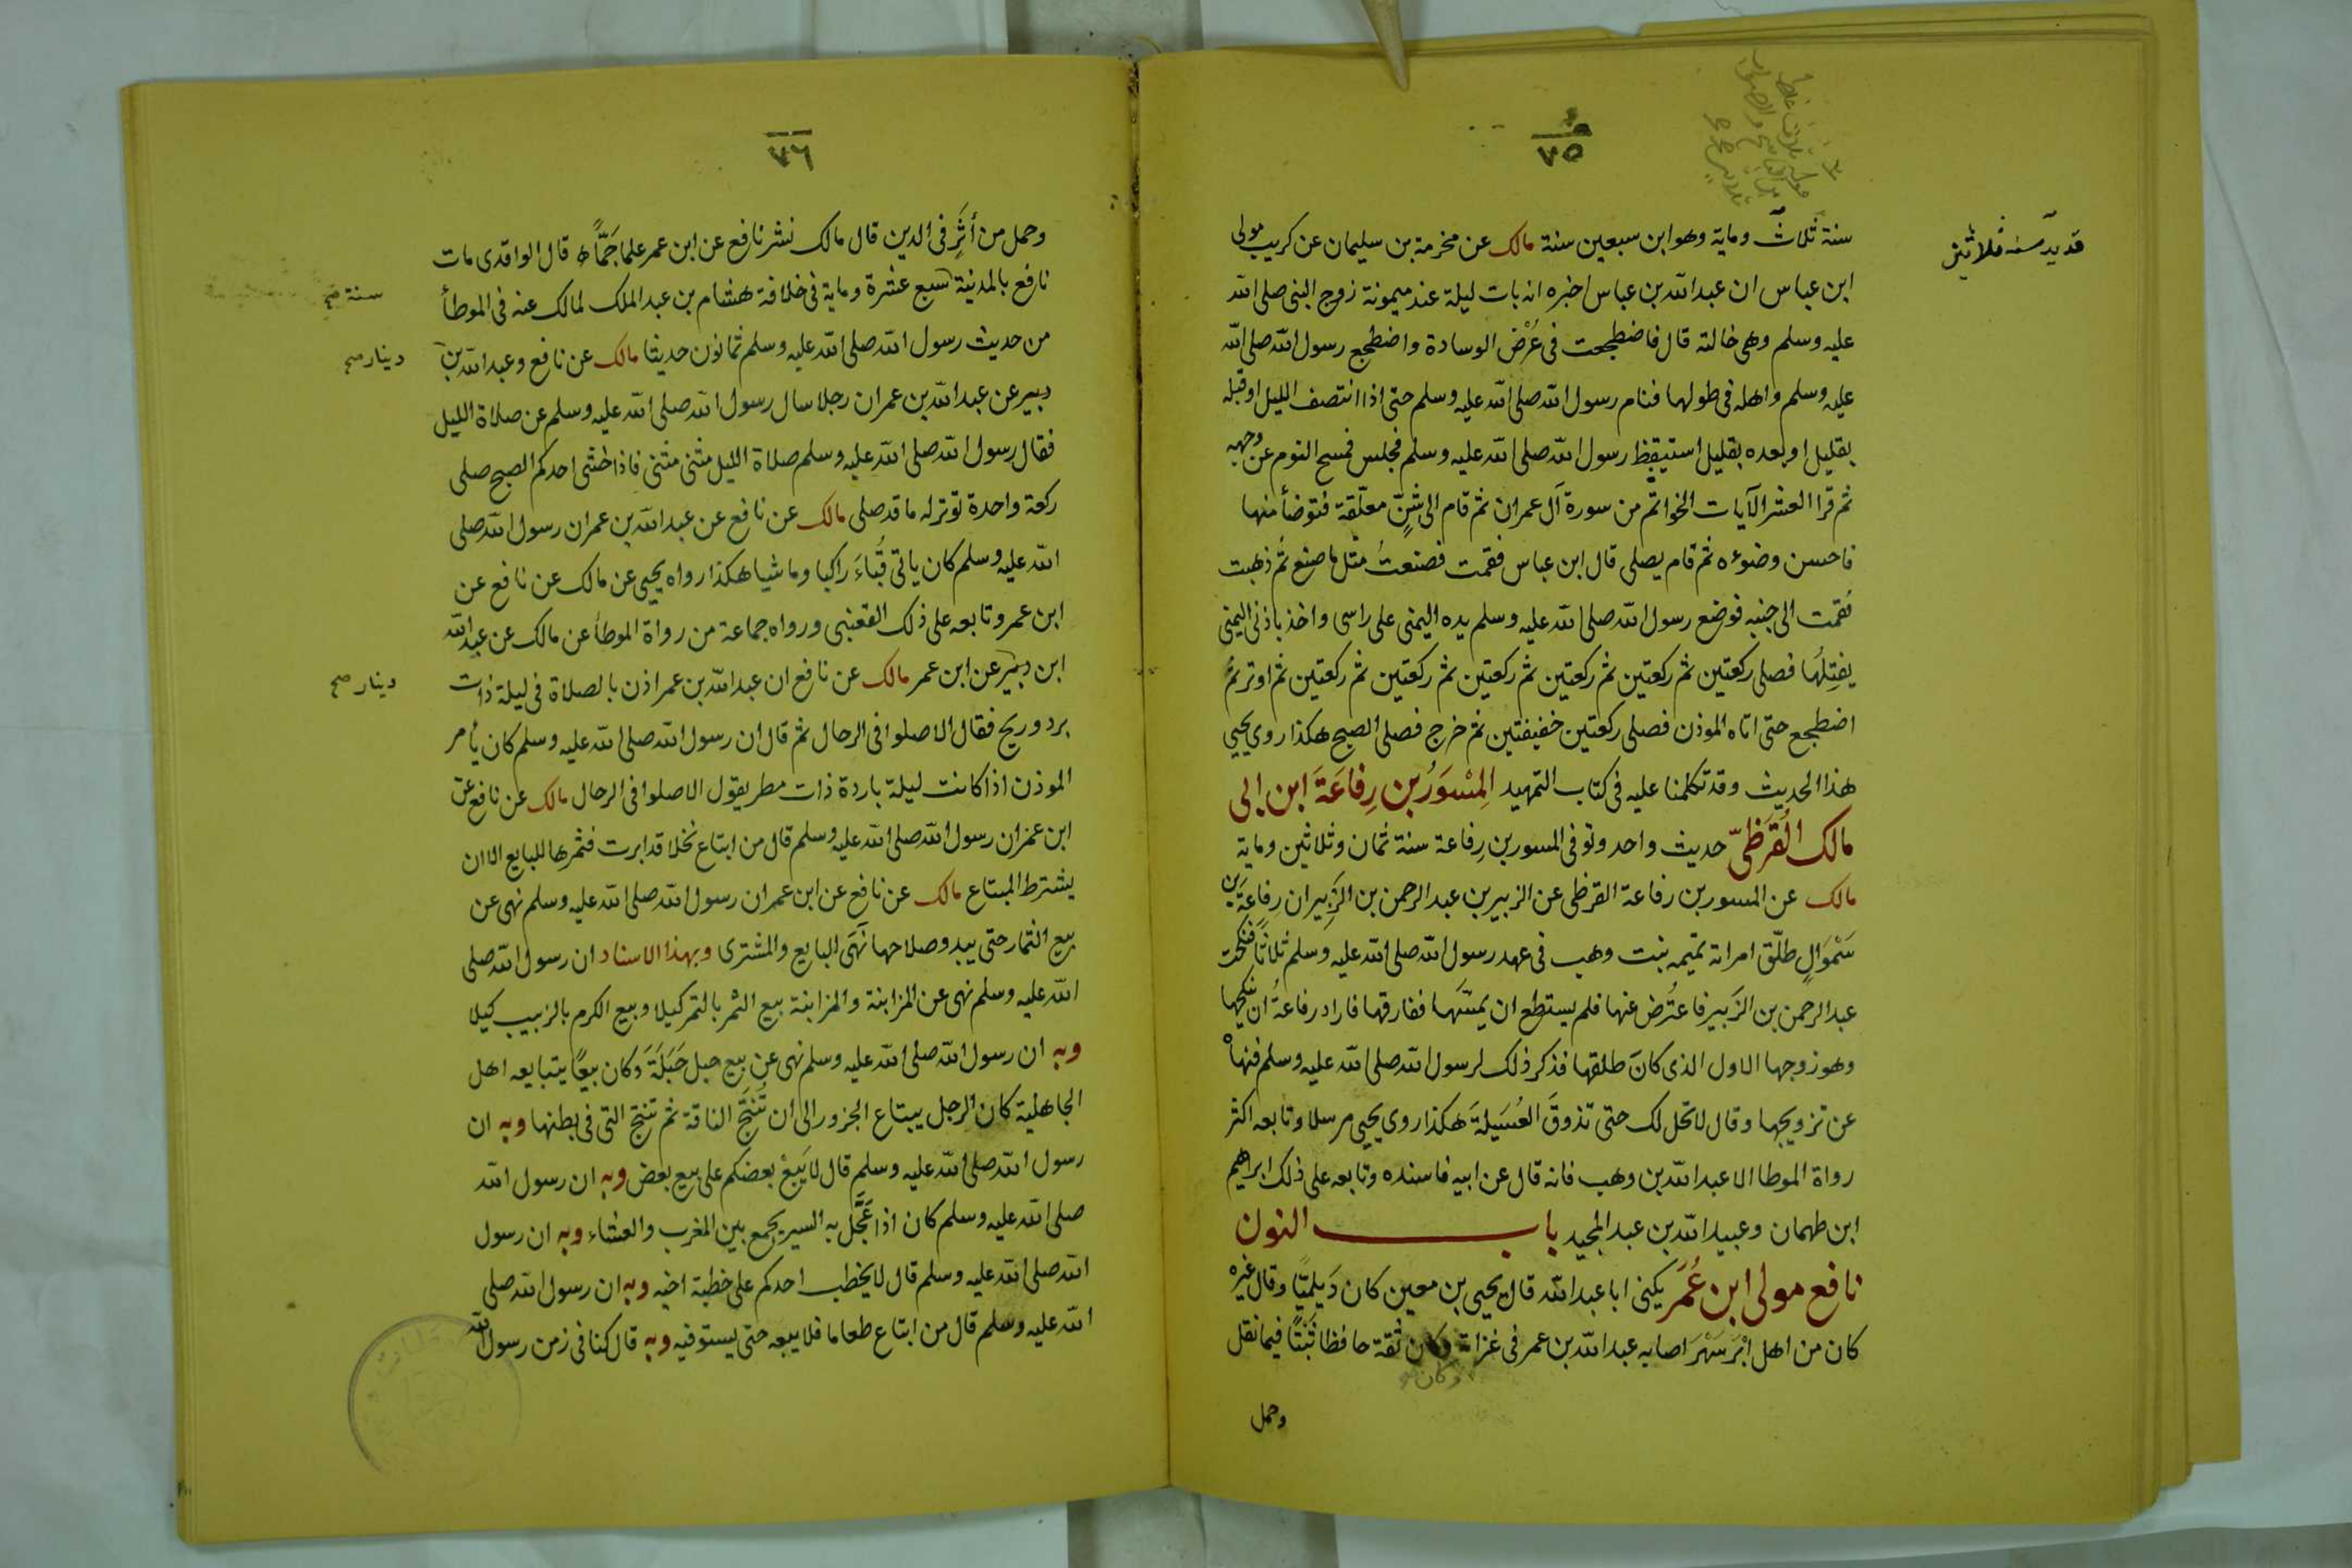 ٧٥
سنة ثلاث وماية وهو ابن سبعين سنة مالك عن مخرمة بن سليمان عن كريب مولى
ابن عباس ان عبد الله بن عباس اخبره انه بات ليلة عند ميمونة زوج النبى صلى الله
عليه وسلم وهى خالته قال فاضطجعت فى عُرْض الوسادة واضطجع رسول الله صلى الله
عليه وسلم واهله فى طولها فنام رسول الله صلى الله عليه وسلم حتى اذا انتصف الليل او قبله
بقليل او بعده بقليل استيقظ رسول الله صلى الله عليه وسلم فجلس فمسح النوم عن وجهه
ثم قرا العشر الآيات الخواتم من سورة آل عمران ثم قام الى شنٍّ معلّقة فتوضأ منها
فاحسن وضوءه ثم قام يصلى قال ابن عباس فقمت فصنعتُ مثل ما صنع ثم ذهبت
فقمت الى جنبه فوضع رسول الله صلى الله عليه وسلم يده اليمنى على راسى واخذ باذنى اليمنى
يفتِلُها فصلى ركعتين ثم ركعتين ثم ركعتين ثم ركعتين ثم ركعتين ثم ركعتين ثم اوتر ثم
اضطجع حتى اتاه الموذن فصلى ركعتين خفيفتين ثم خرج فصلى الصبح هكذا روى يحيى
هذا الحديث وقد تكلمنا عليه فى كتاب التمهيد المِسْوَرُ بن رِفاعَةَ ابن ابى
مالك القُرَظىّ حديث واحد وتوفى المسور بن رِفاعة سنة ثمان وثلاثين وماية
مالك عن المسور بن رفاعة القرظى عن الزبير بن عبد الرحمن بن الزَبِير ان رِفاعَة بن
سَمْوَالٍ طلّق امراته تميمه بنت وهب فى عهد رسول الله صلى الله عليه وسلم ثلاثًا فنكحت
عبد الرحمن بن الزَبير فاعتُرض عنها فلم يستطع ان يمسّها ففارقها فاراد رفاعةُ ان ينكحها
وهو زوجها الاول الذى كان طلقها فذكر ذلك لرسول الله صلى الله عليه وسلم فنهاه
عن تزويجها وقال لا تحل لك حتى تذوقَ العُسَيلةَ هكذا روى يحيى مرسلا وتابعه اكثر
رواة الموطا الا عبد الله بن وهب فانه قال عن ابيه فاسنده وتابعه على ذلك ابراهيم
ابن طهمان وعبيد الله بن عبد المجيد باب النون
نافع مولى ابن عُمَر يكنى ابا عبد الله قال يحيى بن معين كان دَيلميّا وقال غيره
كان من اهل ابْرَسَهْرَ اصابه عبد الله بن عمر فى غزاة وكان ثقة حافظا ثَبْتًا فيما نقل
وكان
وحمل
قديد سنة ثلاثين
٧٦
وحمل من أثَرٍ فى الدين قال مالك نشر نافع عن ابن عمر علما جَمًّا قال الواقدى مات
نافع بالمدينة سبع عشرة وماية فى خلافة هشام بن عبد الملك لمالك عنه فى الموطأ
من حديث رسول الله صلى الله عليه وسلم ثمانون حديثا مالك عن نافع وعبد الله بن
دبير عن عبد الله بن عمر ان رجلا سال رسول الله صلى الله عليه وسلم عن صلاة الليل
فقال رسول الله صلى الله عليه وسلم صلاة الليل مثنى مثنى فاذا خشى احدكم الصبح صلى
ركعة واحدة توتر له ما قد صلى مالك عن نافع عن عبد الله بن عمر ان رسول الله صلى
الله عليه وسلم كان ياتى قُبَاءَ راكبا وماشيا هكذا رواه يحيى عن مالك عن نافع عن
ابن عمر وتابعه على ذلك القعنبى ورواه جماعة من رواة الموطأ عن مالك عن عبد الله
ابن دبير عن ابن عمر مالك عن نافع ان عبد الله بن عمر اذن بالصلاة فى ليلة ذات
برد وريح فقال الا صلوا فى الرحال ثم قال ان رسول الله صلى الله عليه وسلم كان يأمر
الموذن اذا كانت ليلة باردة ذات مطر يقول الا صلوا فى الرحال مالك عن نافع عن
ابن عمر ان رسول الله صلى الله عليه وسلم قال من ابتاع نخلا قد ابرت فثمرها للبايع الا ان
يشترط المبتاع مالك عن نافع عن ابن عمر ان رسول الله صلى الله عليه وسلم نهى عن
بيع الثمار حتى يبدو صلاحها نَهَى البايع والمشترى وبهذا الاسناد ان رسول الله صلى
الله عليه وسلم نهى عن المزابنة والمزابنة بيع الثمر بالتمر كيلا وبيع الكرم بالزبيب كيلا
وبه ان رسول الله صلى الله عليه وسلم نهى عن بيع حبل حَبَلَةَ وكان بيعًا يتبايعه اهل
الجاهلية كان الرجل يبتاع الجزور الى ان تُنتَج الناقة ثم تنتج التى فى بطنها وبه ان
رسول الله صلى الله عليه وسلم قال لا يَبِعْ بعضكم على بيع بعض وبه ان رسول الله
صلى الله عليه وسلم كان اذا عَجَّل به السير يجمع بين المغرب والعشاء وبه ان رسول
الله صلى الله عليه وسلم قال لا يخطب احدكم على خطبة اخيه وبه ان رسول الله صلى
الله عليه وسلم قال من ابتاع طعاما فلا يبعه حتى يستوفيه وبه قال كنا فى زمن رسول الله
سنة صح
دينار صح
دينار صح